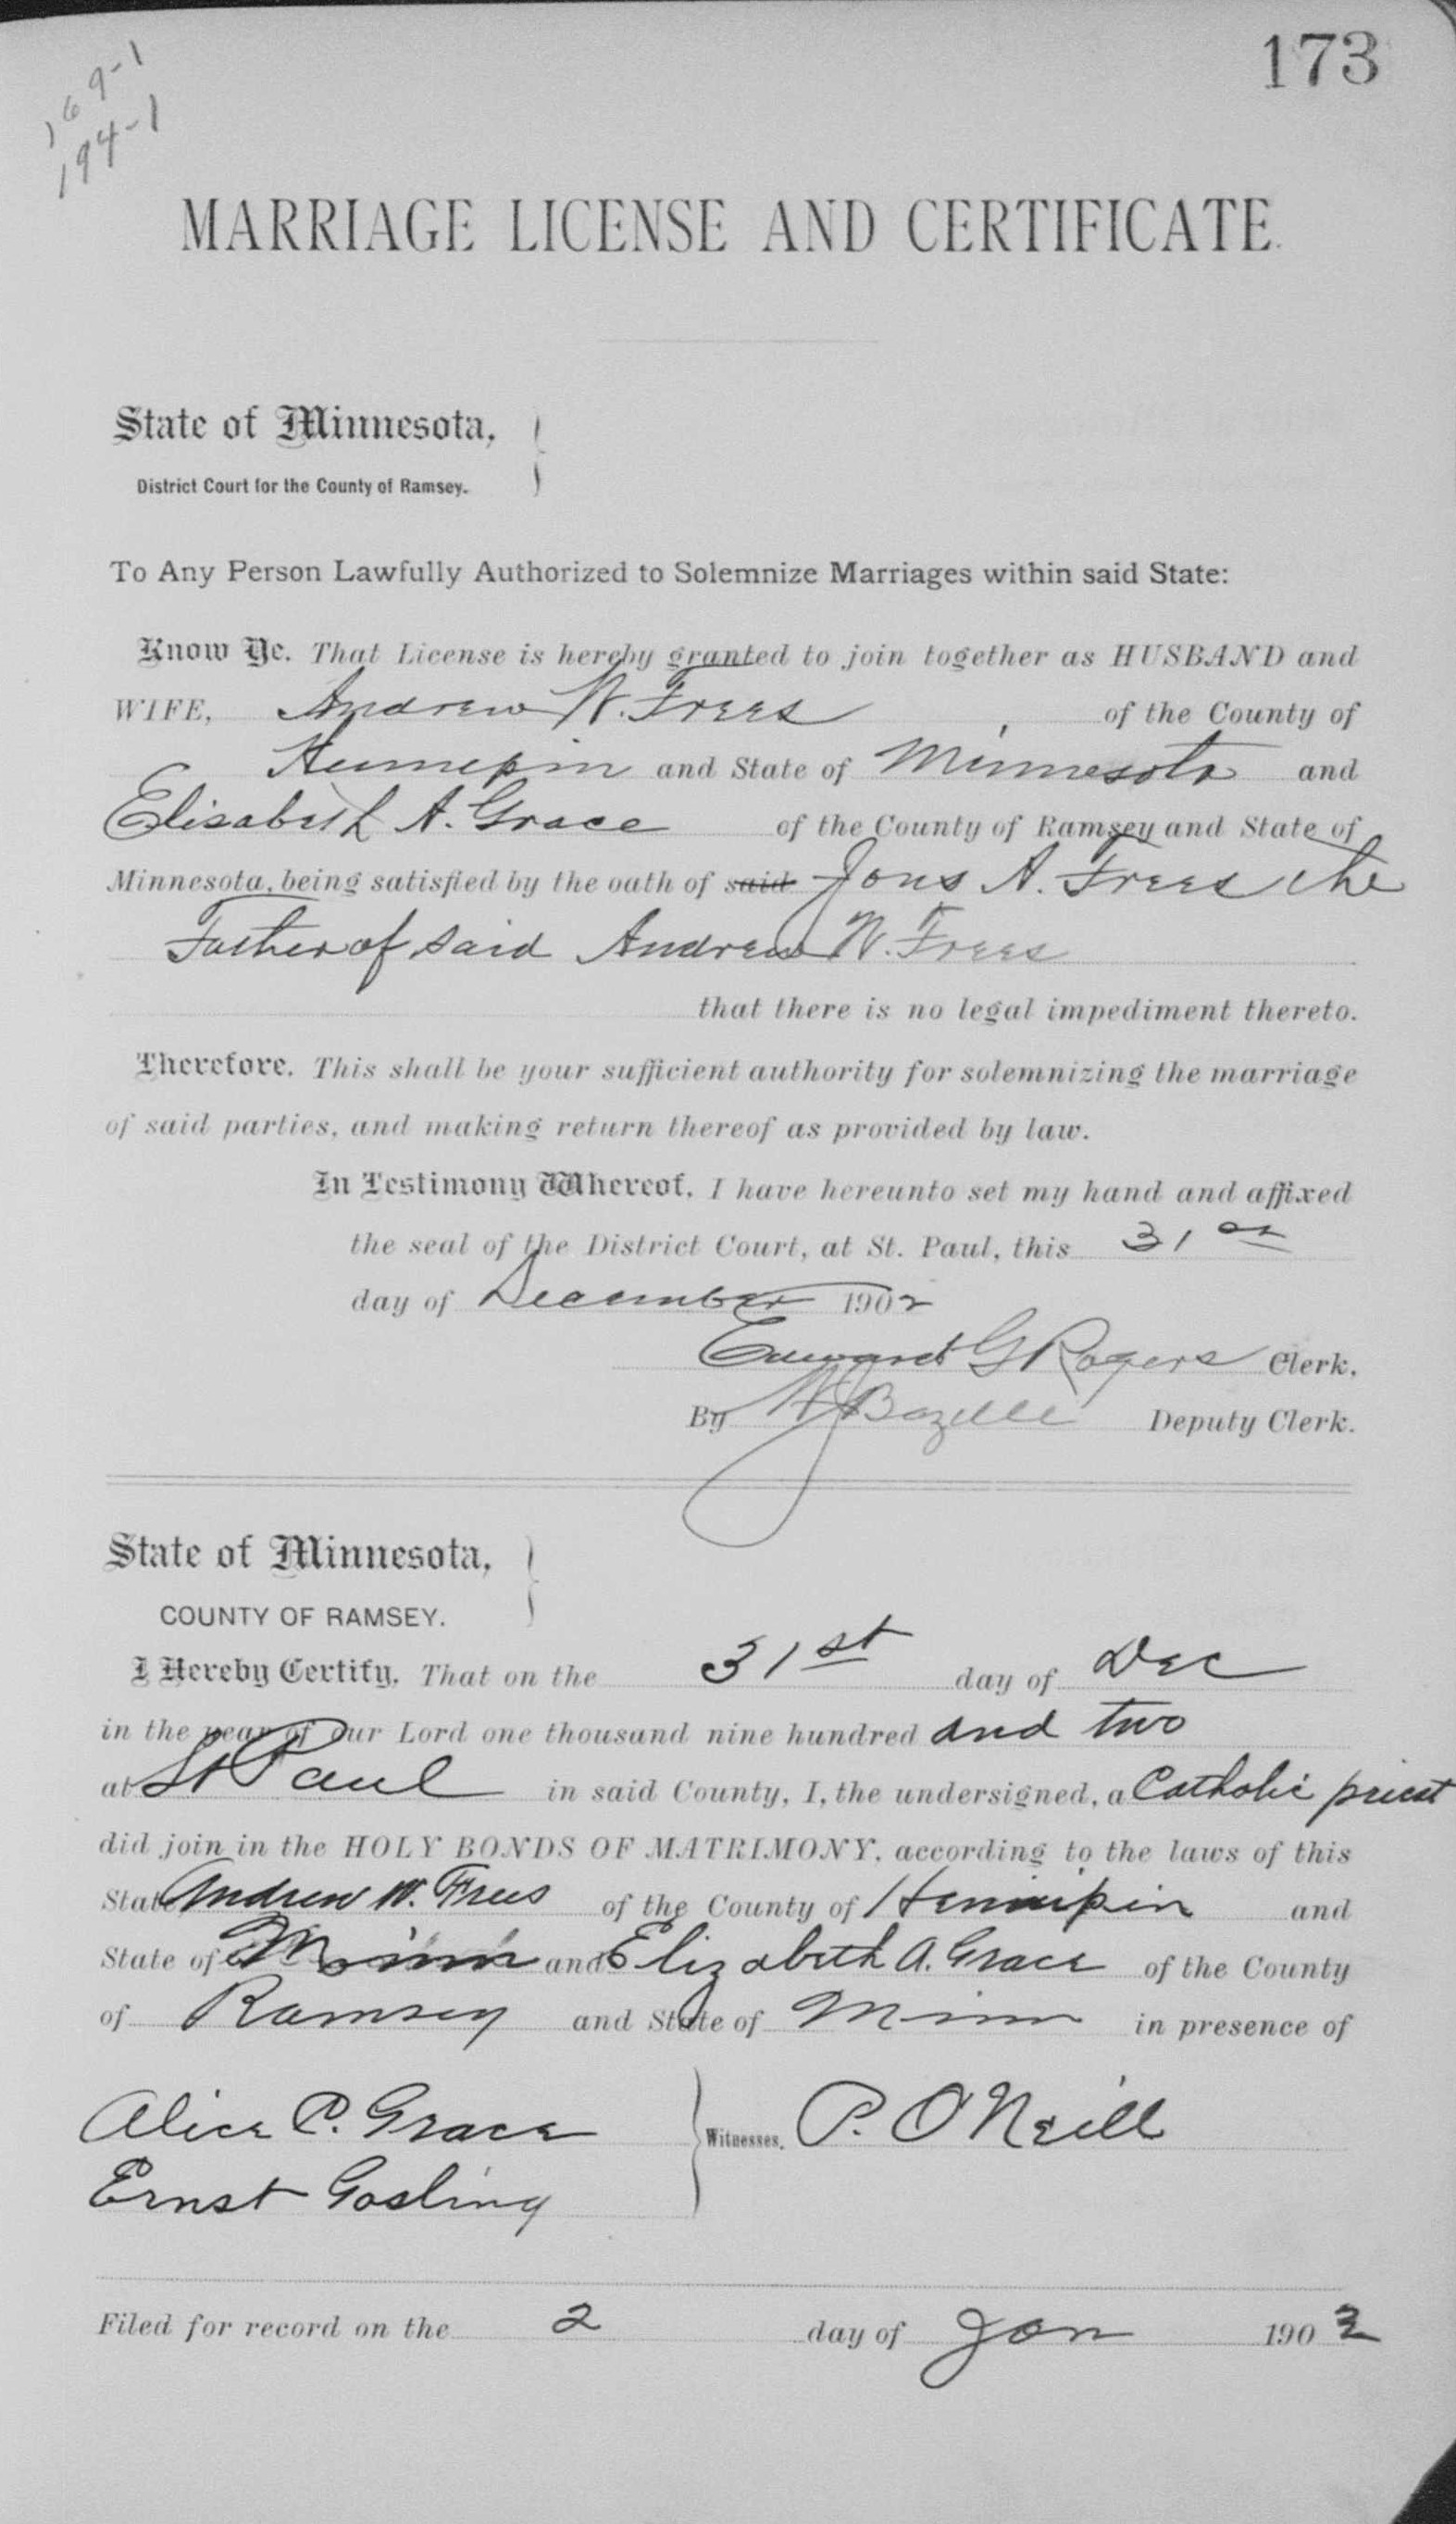 173
169-1
194-1
MARRIAGE LICENSE AND CERTIFICATE.
State of Minnesota,
District Court for the County of Ramsey.
To Any Person Lawfully Authorized to Solemnize Marriages within said State:
Know Ye, That License is hereby granted to join together as HUSBAND and
WIFE, Andrew W. Frees of the County of
Hennepin and State of Minnesota and
Elisabeth A. Grace of the County of Ramsey and State of
Minnesota, being satisfied by the oath of said Jons A. Frees the
Father of said Andrew W. Frees
that there is no legal impediment thereto.
Therefore, This shall be your sufficient authority for solemnizing the marriage
of said parties, and making return thereof as provided by law.
In Testimony Whereof, I have hereunto set my hand and affixed
the seal of the District Court, at St. Paul, this 31st
day of December 1902
Edward G Rogers Clerk.
By Bazille Deputy Clerk.
State of Minnesota,
COUNTY OF RAMSEY.
I Hereby Certify, That on the 31st day of Dec
in the year of our Lord one thousand nine hundred and two
at St Paul in said County, I, the undersigned, a Catholic priest
did join in the HOLY BONDS OF MATRIMONY, according to the laws of this
State Andrew W. Frees of the County of Hennipin and
State of Minn and Elizabeth A. Grace of the County
of Ramsey and State of Minn in presence of
Alice C. Grace
Witnesses. P. O'Neill
Ernst Gosling
Filed for record on the 2 day of Jan 1903